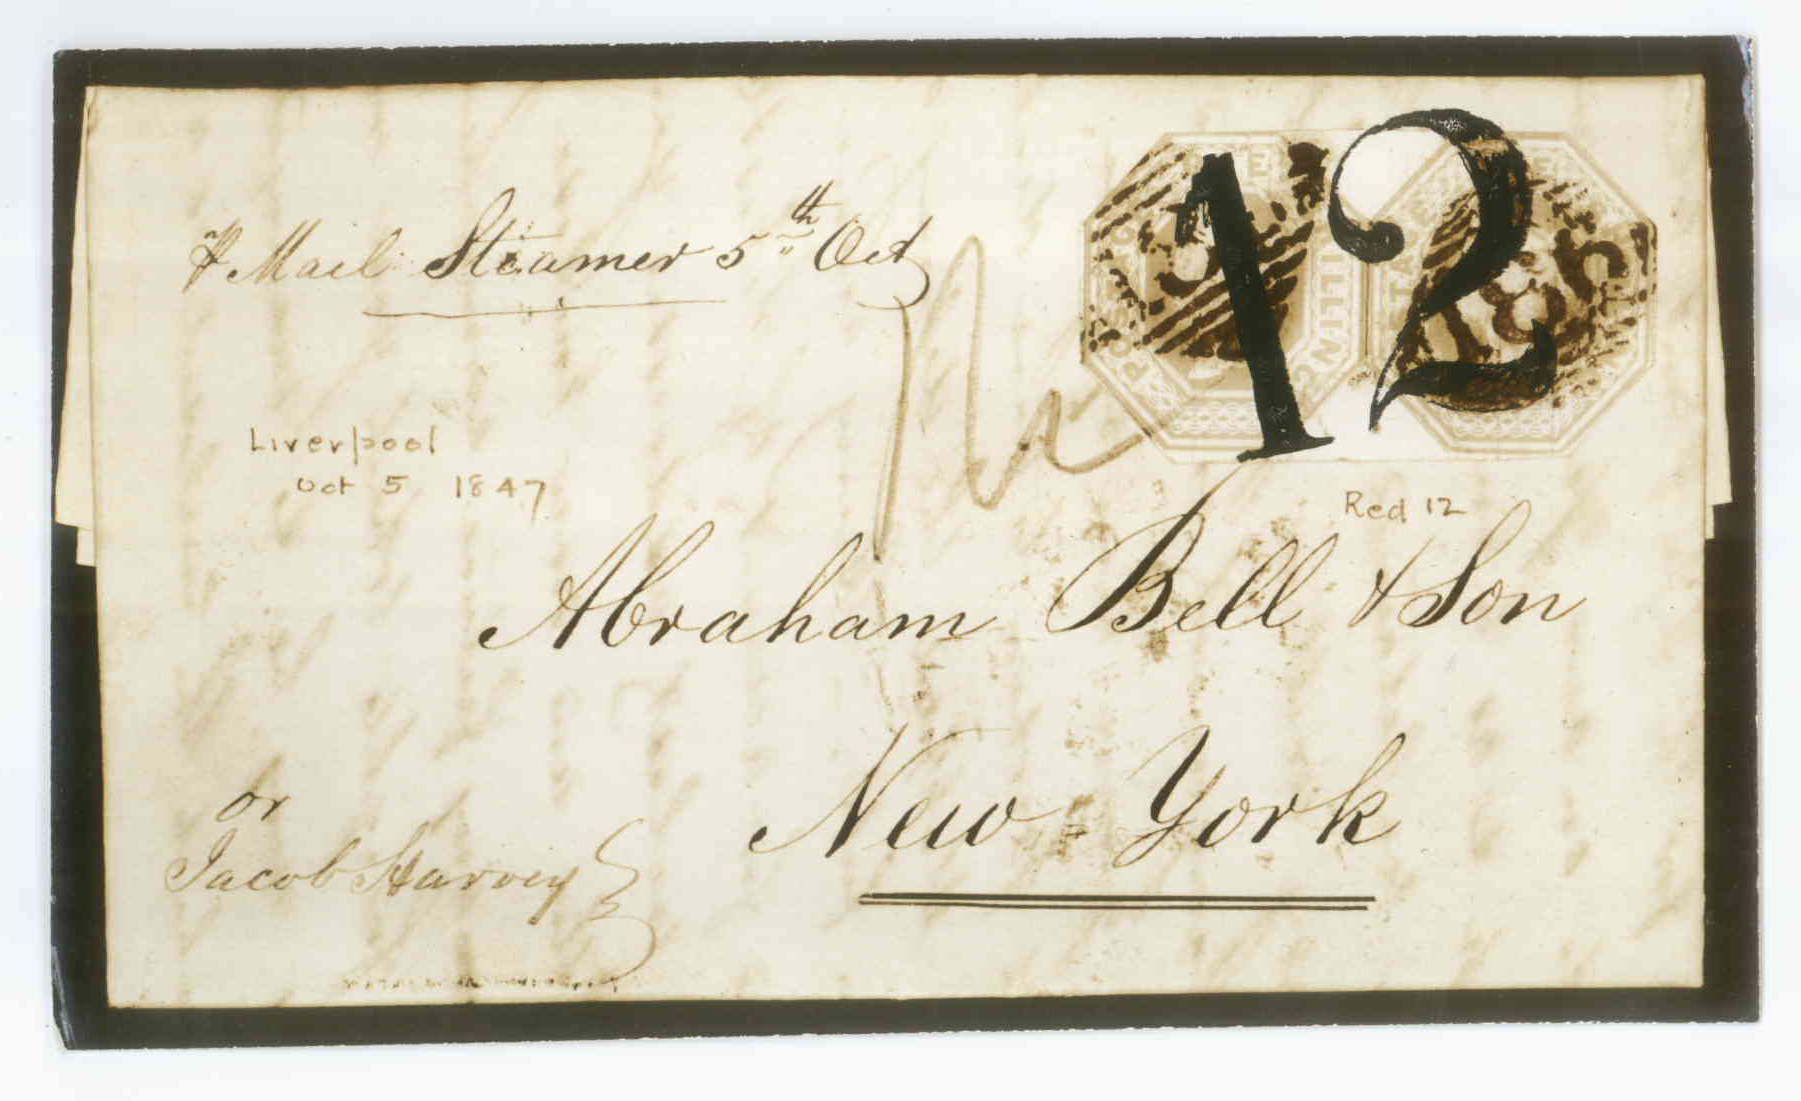 12
⅌ Mail Steamer 5th Oct
Liverpool
Oct 5 1847
Red 12
Abraham Bell & Son
New York
or
Jacob Harvey